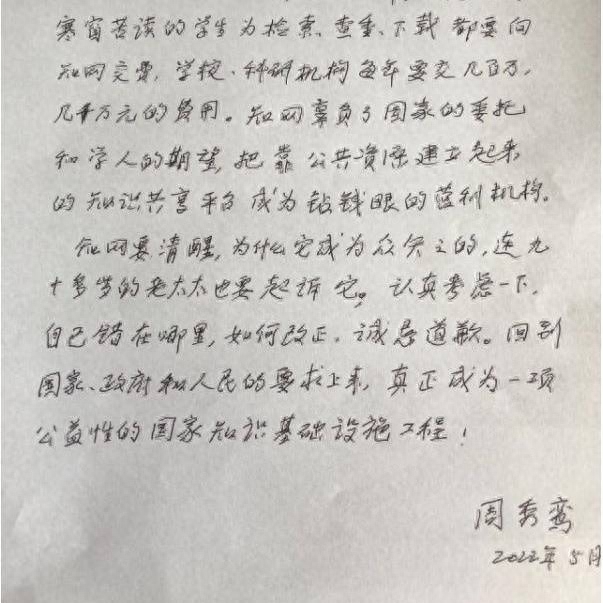 寒窗苦读的学生为检索、查重、下载都要向
知网交费,学校、科研机构每年要交几百万,
几千万元的费用。知网辜负了国家的委托
和学人的期望,把靠公共资源建立起来
的知识共享平台成为钻钱眼的营利机构。
知网要清醒,为什么它成为众矢之的,连九
十多岁的老太太也要起诉它。认真考虑一下,
自己错在哪里,如何改正,诚恳道歉。回到
国家、政府和人民的要求上来,真正成为一项
公益性的国家知识基础设施工程!
周秀鸾
2022年5月